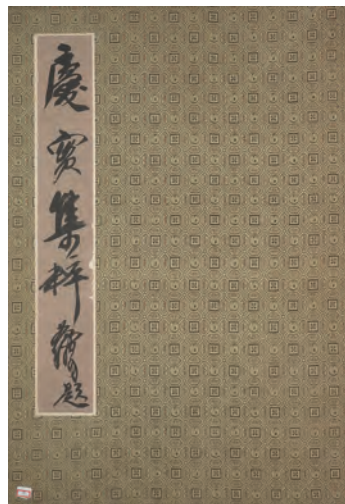 慶寶集粹 題